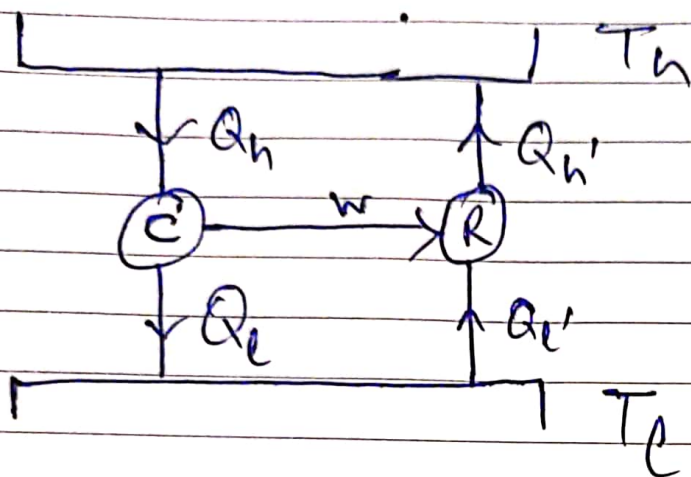 T_h
Q_h Q_h'
C W R
Q_l Q_l'
T_l